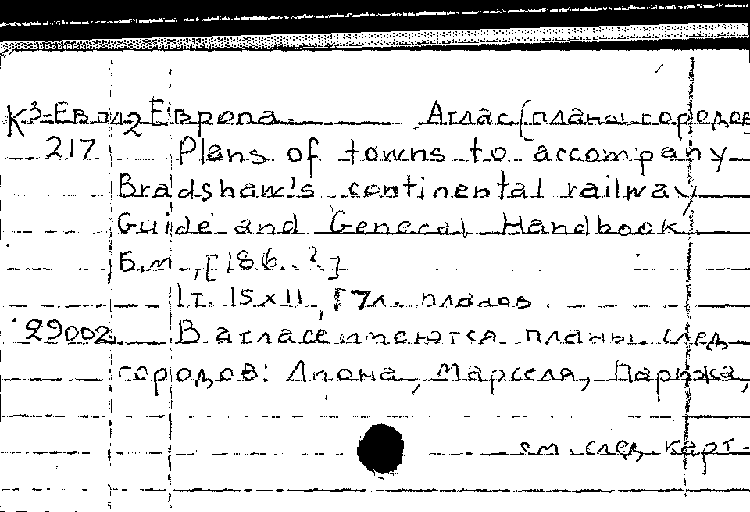 К3-Евр/2 Европа Атлас (планы городов
217 Plans of towns to accompany
Bradshaw's continental railway
Guide and General Handbook
Б.м., [186..?]
1т. 15x11, 17л. планов
29002 В атласе имеются планы след.
городов: Лиона, Марселя, Парижа,
см. след. карт.